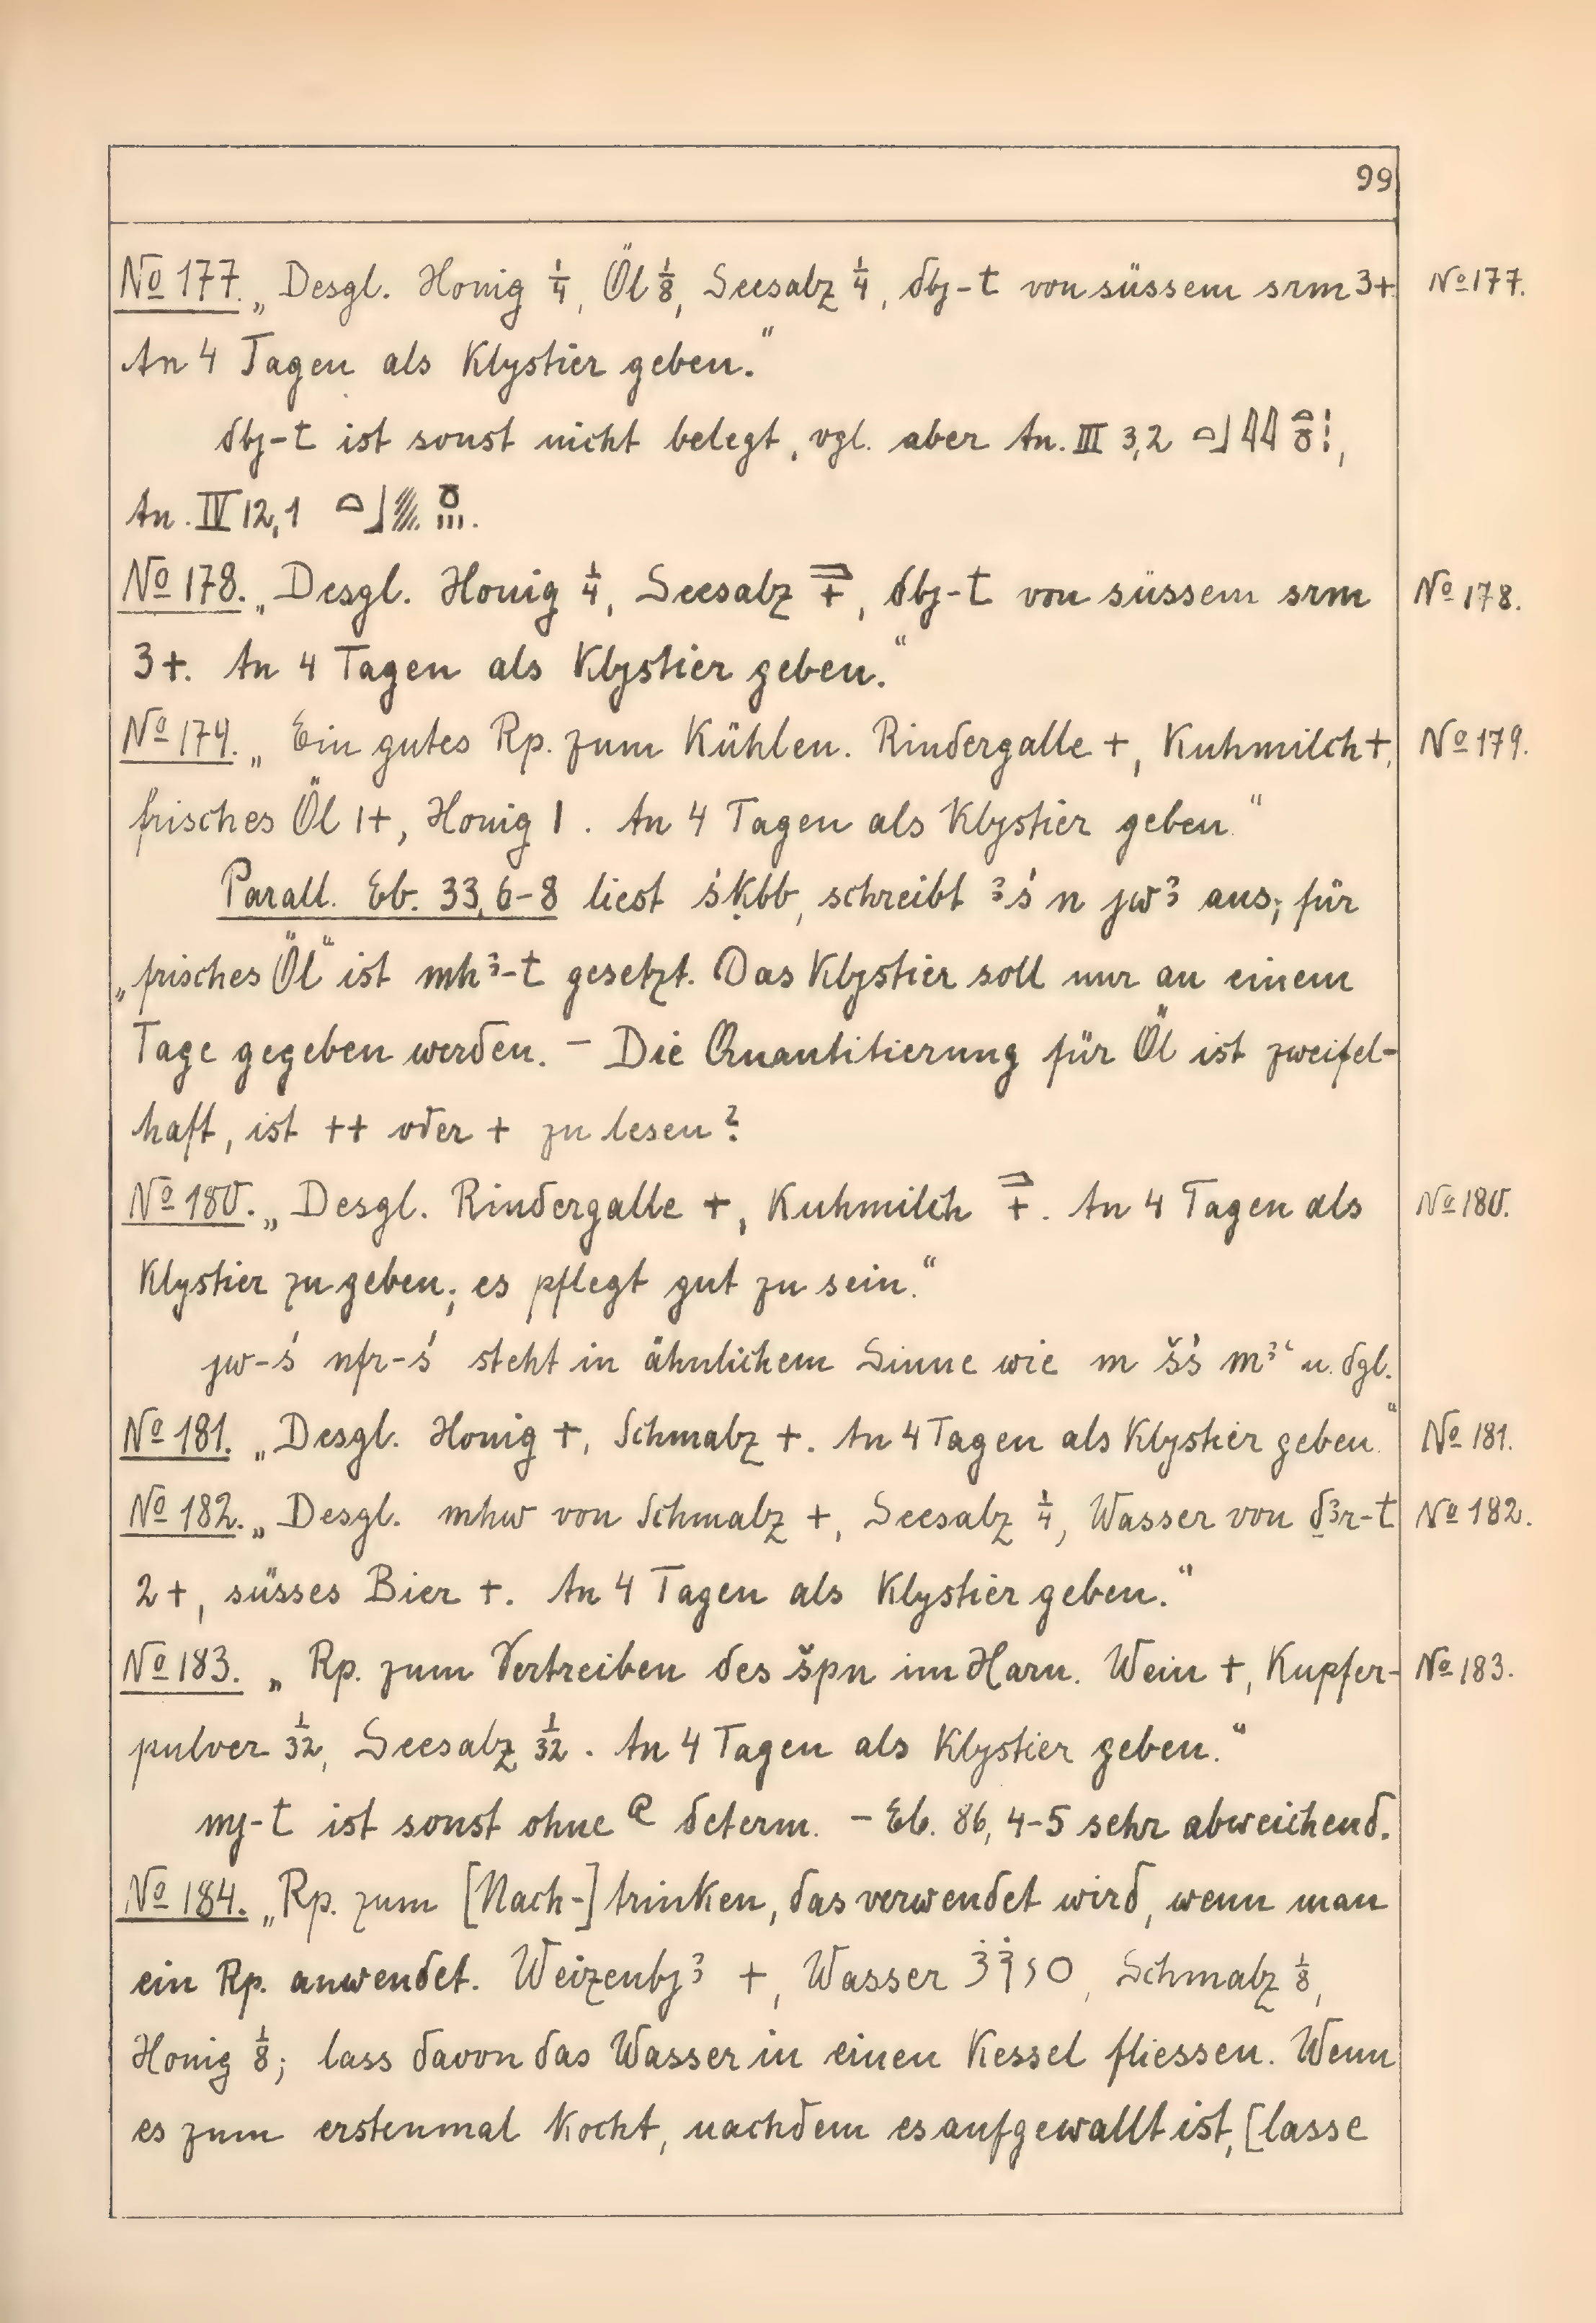 99
No 177. „Desgl. Honig 1/4, Öl 1/8, Seesalz 1/4, dbj-t von süssem srm 3+ No 177.
An 4 Tagen als Klystier geben."
dbj-t ist sonst nicht belegt, vgl. aber An. III 3,2
An. IV 12,1
No 178. „Desgl. Honig 1/4, Seesalz +, dbj-t von süssem srm No 178.
3+. An 4 Tagen als Klystier geben."
No 179. „Ein gutes Rp. zum Kühlen. Rindergalle +, Kuhmilch +, No 179.
frisches Öl 1+, Honig 1. An 4 Tagen als Klystier geben."
Parall. Eb. 33,6-8 liest śḳbb, schreibt ꜣś n jwꜣ aus; für
„frisches Öl" ist mhꜣ-t gesetzt. Das Klystier soll nur an einem
Tage gegeben werden. – Die Quantitierung für Öl ist zweifel-
haft, ist ++ oder + zu lesen?
No 180. „Desgl. Rindergalle +, Kuhmilch +. An 4 Tagen als No 180.
Klystier zu geben; es pflegt gut zu sein."
jw-ś nfr-ś steht in ähnlichem Sinne wie m šś mꜣꜥ u. dgl.
No 181. „Desgl. Honig +, Schmalz +. An 4 Tagen als Klystier geben." No 181.
No 182. „Desgl. mhw von Schmalz +, Seesalz 1/4, Wasser von ḏꜣr-t No 182.
2+, süsses Bier +. An 4 Tagen als Klystier geben."
No 183. „Rp. zum Vertreiben des špn im Harn. Wein +, Kupfer- No 183.
pulver 1/32, Seesalz 1/32. An 4 Tagen als Klystier geben."
mj-t ist sonst ohne determ. – Eb. 86, 4-5 sehr abweichend.
No 184. „Rp. zum [Nach-]trinken, das verwendet wird, wenn man
ein Rp. anwendet. Weizenbjꜣ +, Wasser Schmalz 1/8,
Honig 1/8; lass davon das Wasser in einen Kessel fliessen. Wenn
es zum erstenmal kocht, nachdem es aufgewallt ist, [lasse